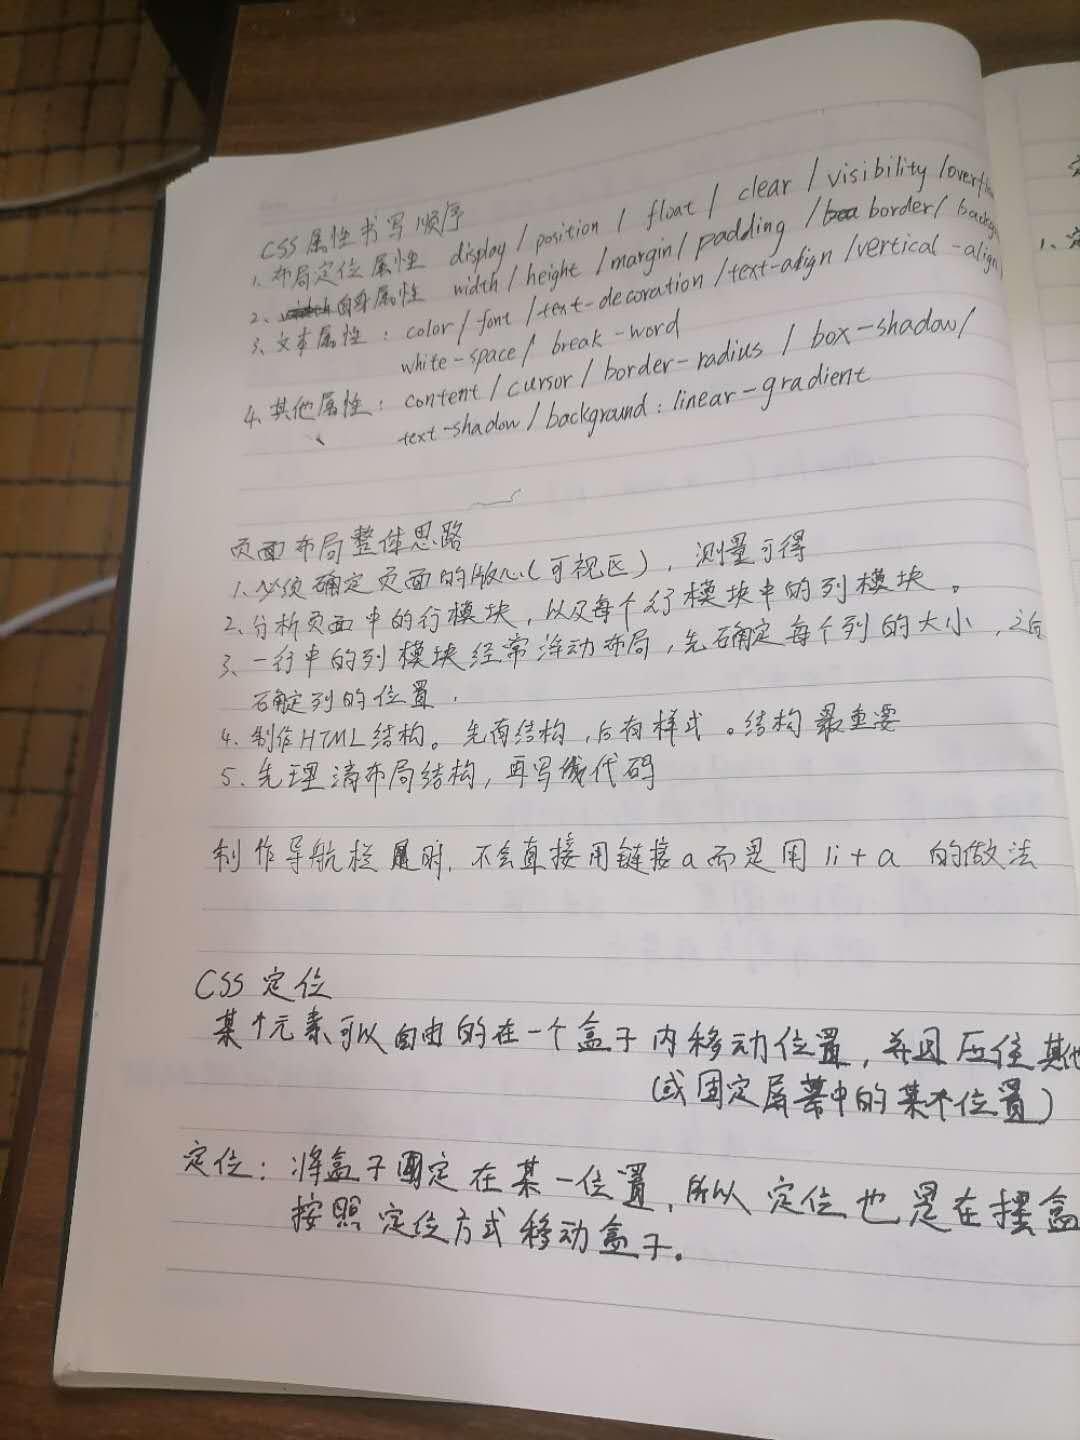 CSS属性书写顺序
1、布局定位属性 display / position / float / clear / visibility / overflow
2、自身属性 width / height / margin / padding / border / backg
3、文本属性：color / font / text-decoration / text-align / vertical-align
white-space / break-word
4、其他属性：content / cursor / border-radius / box-shadow /
text-shadow / background：linear-gradient
页面布局整体思路
1、必须确定页面的版心（可视区），测量可得
2、分析页面中的行模块，以及每个行模块中的列模块。
3、一行中的列模块经常浮动布局，先确定每个列的大小，之后
确定列的位置．
4、制作HTML结构。先有结构，后有样式。结构最重要
5、先理清布局结构，再写代码
制作导航栏时．不会直接用链接a而是用 li + a 的做法
CSS 定位
某个元素可以自由的在一个盒子内移动位置，并且压住其他
（或固定屏幕中的某个位置）
定位：将盒子固定在某一位置，所以定位也是在摆盒
按照定位方式移动盒子.
1、